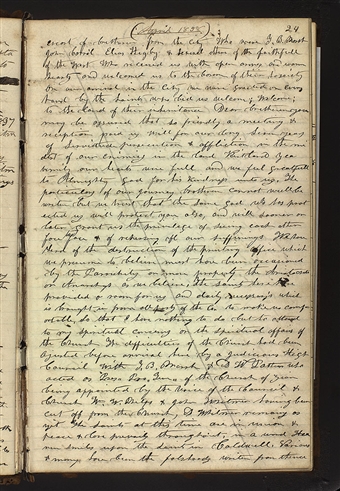 (April 1838) 24
escort of brethren from the city Who were T. B. Marsh
John Corril Elias Higby & several others of the faithfull
of the West Who received us with open armes and warm
hearts and welcomed us to the bosom of their society
On our arrival in the city we were greeted on every
hand by the Saints who bid us welcom; Welcome;
to the land of their inheritance. Dear brethren you
may be assured that so friendly a meeting &
reception paid us well for our long seven years
of servitude persecution & affliction in the mi
dst of our enimies in the land Kirtland yea
verily our hearts were full and we feel greatfull
to Almighty God for his kindness unto us. The
particulars of our Journey brethren cannot well be
writen but we trust that the same God who has prot
ected us will protect you also, and will sooner or
later grant us the privilege of seeing each other
face to face & of rehersing all our sufferings We have
herd of the destruction of the printing office which
we presume to believe must have been occasioned
by the Parrishites or more properly the Aristocrats
or Anarchys as we believe, The saints here have
provided a room for us and daily necessary's which
is brought in from all parts of the Co. to make us comf
ortable, so that I have nothing to do but to attend
to my spiritual concerns or the spiritual affairs of
the Church The difficulties of the Church had been
ajusted before arrival here by a Judicious High
Council With T. B. Marsh & D W Patten who
acted as Pres. Pro. Tem. of the Church of Zion
being appointed by the voice of the Council &
Church Wm W. Phelps & John Whitmer having been
cut off from the Church, D Whitmer remains as
yet The Saints at this time are in union &
peace & love prevails throughout, in a word Hea
ven smiles upon the saints in Caldwell. Various
& many have been the falshoods writen from thence